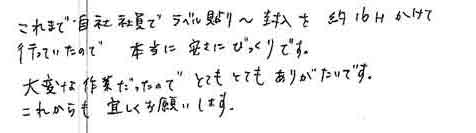 これまで自社社員でラベル貼り〜封入を約16Hかけて
行っていたので 本当に安さにびっくりです。
大変な作業だったのでとてもとてもありがたいです。
これからも宜しくお願いします。